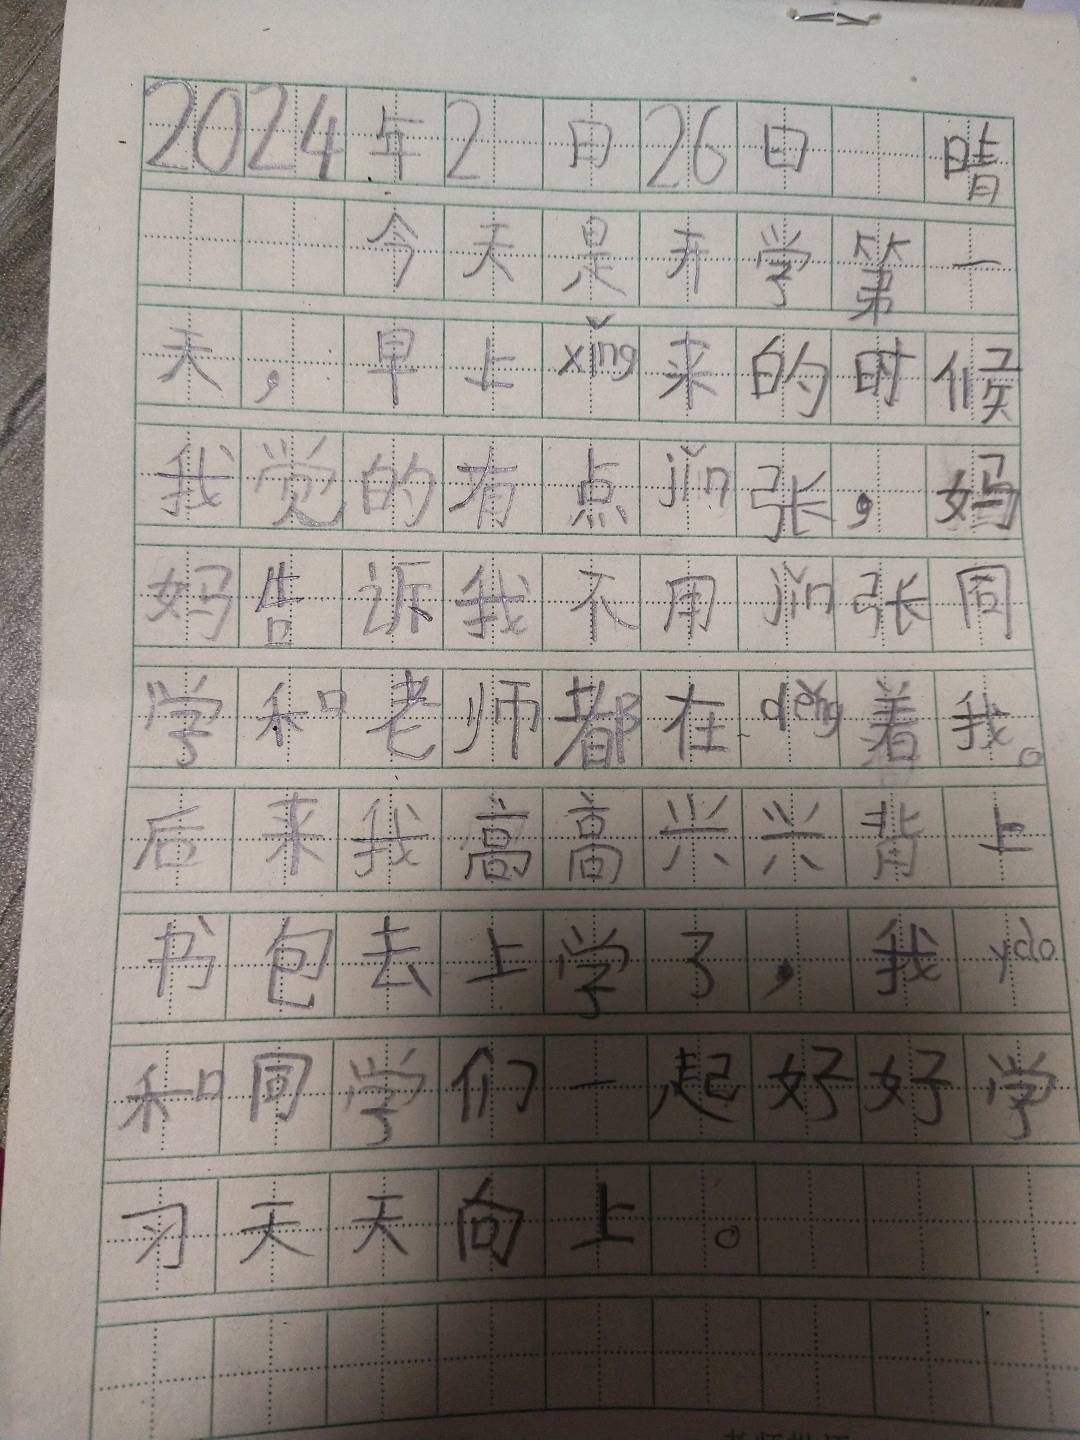 2024年2月26日 晴
今天是开学第一
天，早上xǐng来的时候
我觉的有点jǐn张，妈
妈告诉我不用jǐn张同
学和老师都在děng着我。
后来我高高兴兴背上
书包去上学了，我yào
和同学们一起好好学
习天天向上。